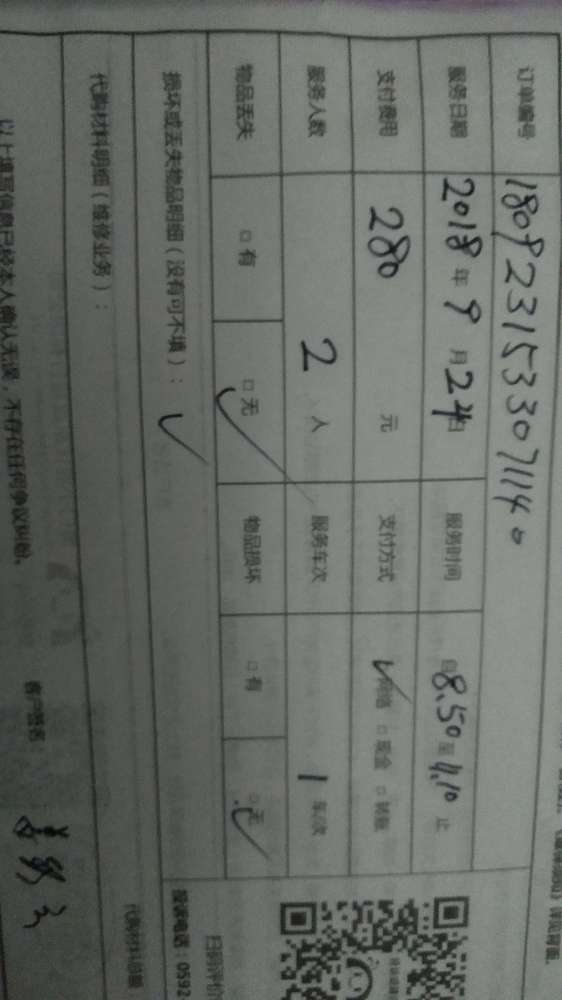 订单编号 180923153307114
服务日期 2018年9月24日 服务时间 自8.50至11.10止
支付费用 280元 支付方式 ☑网络 □现金 □转账
服务人数 2人 服务车次 1车/次
物品丢失 □有 ☑无 物品损坏 □有 ☑无
损坏或丢失物品明细(没有可不填):
代购材料明细(维修业务):
代购材料总额
以上填写信息已经本人确认无误,不存在任何争议纠纷。
客户签名:
扫码评价
投诉电话:0592